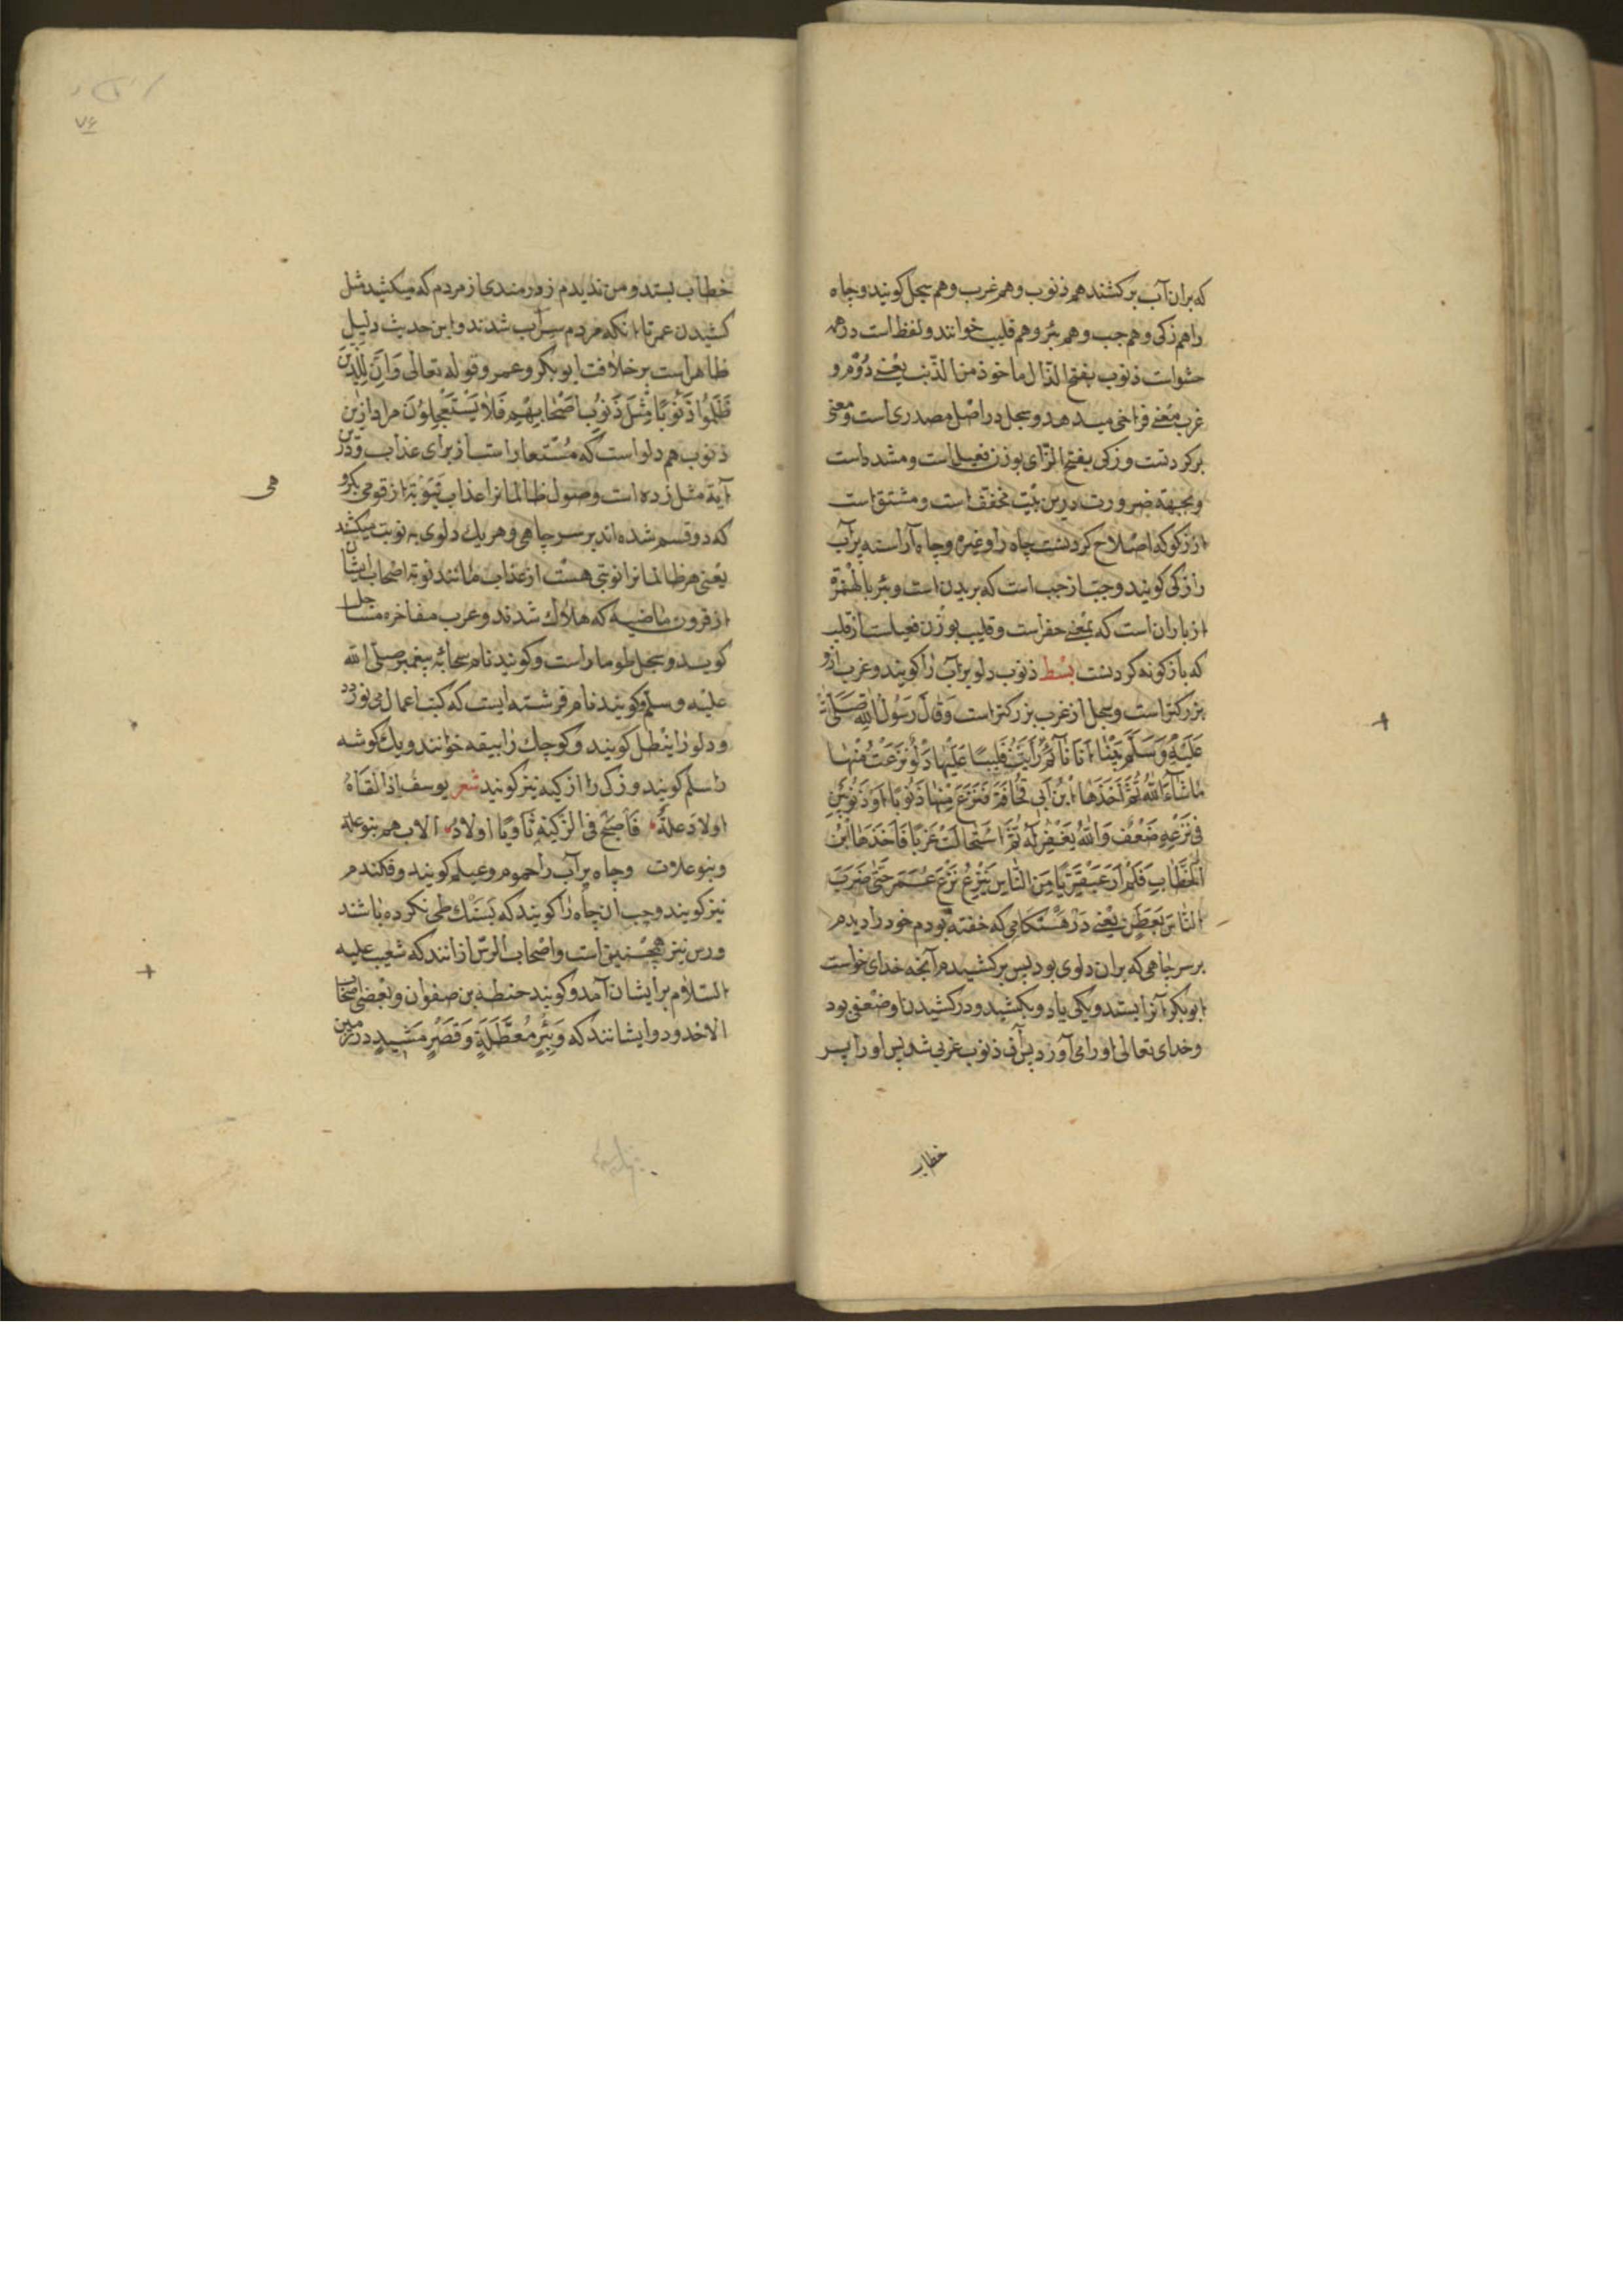 که بران آب برکشند هم ذنوب و هم غرب و هم سجل کویند و چاه
را هم زکی و هم جب و هم بئر و هم قلیب خوانند و لفظ است درهمه
حشوات ذنوب بفتح الذال ماخوذ من الذنب یعنی دُوّم و
غرب معنی فراخی میدهد و سجل در اصل مصدری است و معنی
برکردنست و زکی بفتح الزای بوزن فعیل است و مشدداست
وبجهة ضرورت درین بیت مخفف است و مشتق است
از زکو که اصلاح کردنست چاه را و غیره و چاه آراسته برآب
را زکی کویند و جب از جب است که بریدن است و بئر بالهمزة
از باران است که بمعنی حفر است و قلیب بوزن فعیلست از قلب
که بازکونه کردنست بسط ذنوب دلو پرآب را کویند و غرب ازو
بزرکتر است و سجل از غرب بزرکتر است وَقَالَ رَسُولُ اللهِ صَلَّی اللهُ
عَلَیْهِ وَسَلَّمَ بَیْنَا اَنَا نَآئِمٌ رَاَیْتُ قَلِیبًا عَلَیْهَا دَلْوٌ نَزَعْتُ مِنْهَا
مَا شَآءَ اللهُ ثُمَّ اَخَذَهَا ابْنُ اَبِی قُحَافَةَ فَنَزَعَ مِنْهَا ذَنُوبًا اَوْ ذَنُوبَیْنِ
فِی نَزْعِهِ ضَعْفٌ وَاللهُ یَغْفِرُ لَهُ ثُمَّ اسْتَحَالَتْ غَرْبًا فَاَخَذَهَا ابْنُ
الْخَطَّابِ فَلَمْ اَرَ عَبْقَرِیًّا مِنَ النَّاسِ یَنْزِعُ نَزْعَ عُمَرَ حَتَّی ضَرَبَ
النَّاسُ بِعَطَنٍ یعنی در هنکامی که خفته بودم خود را دیدم
برسر چاهی که بران دلوی بود پس برکشیدم آنچه خدای خواست
ابوبکر آنرا بستد و یکی یا دو بکشید و در کشیدن او ضعفی بود
و خدای تعالی او را می آورد پس آن ذنوب غربی شد پس او را پسر
خطاب
خطاب بستد و من ندیدم زورمندی از مردم که میکشید مثل
کشیدن عمر تا انکه مردم سیرآب شدند و این حدیث دلیل
ظاهر است بر خلافت ابوبکر و عمر و قوله تعالی وَاِنَّ لِلَّذِینَ
ظَلَمُوا ذَنُوبًا مِثْلَ ذَنُوبِ اَصْحَابِهِمْ فَلَا یَسْتَعْجِلُونَ مراد ازین
ذنوب هم دلو است که مُستعار است از برای عذاب و درین
آیة مثل زده است وصول ظالمانرا عذاب بنوبة از قومی
که دو قسم شده اند بر سر چاهی و هر یک دلوی به نوبت میکشند
یعنی مر ظالمانرا نوبتی هست از عذاب مانند نوبة اصحاب ایشان
از قرون ماضیه که هلاک شدند و عرب مفاخره مساجل
کوید و سجل طومار است و کویند نام سحابهٔ پیغمبر صلی الله
علیه و سلم و کویند نام فرشته ایست که کتب اعمال می نوردد
و دلو را نیطل کویند و کوچک را بیقه خوانند و یک کوشه
را سلم کویند و زک را ازکیه نیز کویند شعر یوسف اذ القاهُ
اولاد علةٍ فَاَصْبَحَ فی الزکیةِ ثاویًا اولادُ الاب هم بنو علة
و بنو علات و چاه پرآب را جموم و عیلم کویند و قکندم
نیز کویند و جب ان چاه را کویند که بسنک طی نکرده باشند
و رس نیز همچنین است و اصحاب الرس ازانند که شعیب علیه
السلام بر ایشان آمد و کویند حنظله بن صفوان و بعضی اصحاب
الاخدود و ایشانند که وَبِئْرٍ مُعَطَّلَةٍ وَقَصْرٍ مَشِیدٍ در زمین
هی
۷۶